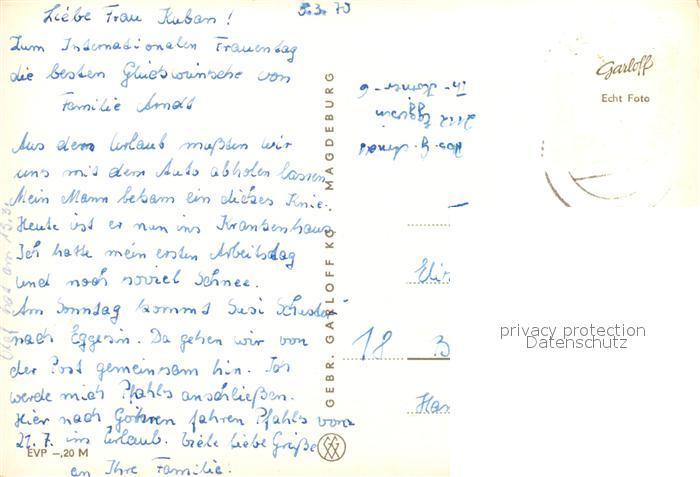 Liebe Frau Kuban!
5.3.73
Zum Internationalen Frauentag
die besten Glückwünsche von
Familie Arndt
Aus dem Urlaub mußten wir
uns mit dem Auto abholen lassen.
Mein Mann bekam ein dickes Knie.
Heute ist er nun ins Krankenhaus
Ich hatte mein ersten Arbeitsdag
und noch soviel Schnee.
Am Sonntag kommt Susi Schuster
nach Eggesin. Da gehen wir von
der Post gemeinsam hin. Ich
werde mich Pfahls anschließen.
Hier nach Göhren fahren Pfahls vom
21.7. ins Urlaub. Viele liebe Grüße
an Ihre Familie!
EVP –,20 M
GEBR. GARLOFF KG, MAGDEBURG
Abs. G. Arndt
Eggesin
Th.- Körner - 6
Garloff
Echt Foto
18
3
Han
privacy protection
Datenschutz